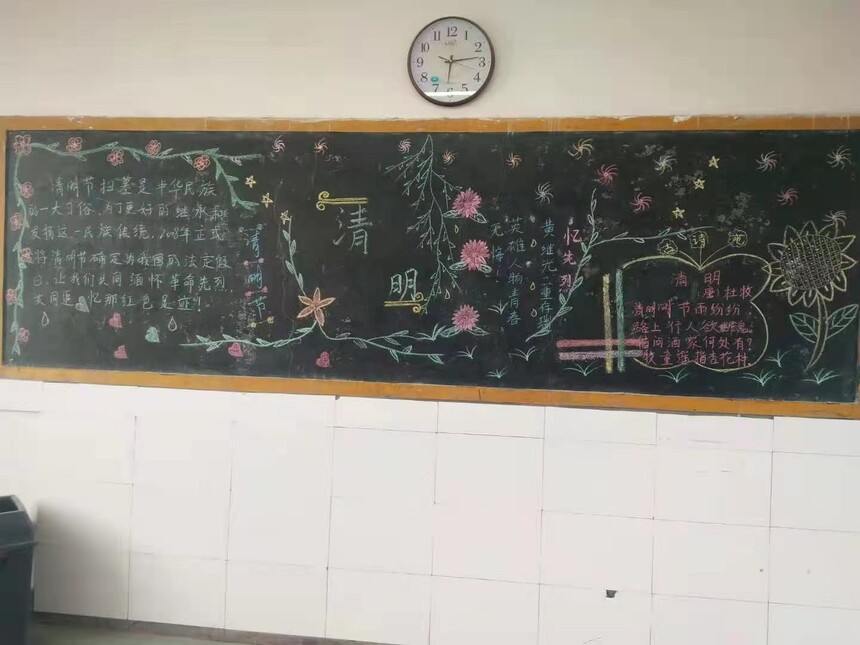 清明节扫墓是中华民族
的一大习俗,为了更好的继承和
发扬这一民族传统,2008年正式
将清明节确定为我国的法定假
日,让我们共同 缅怀 革命先列,
共同追忆那红色足迹!
清明节
清
明
忆先列
英雄人物青春
无悔
古诗
清 明
唐:杜牧
清明时节雨纷纷,
路上行人欲断魂。
借问酒家何处有?
牧童遥指杏花村.
12
1
2
3
4
5
6
7
8
9
10
11